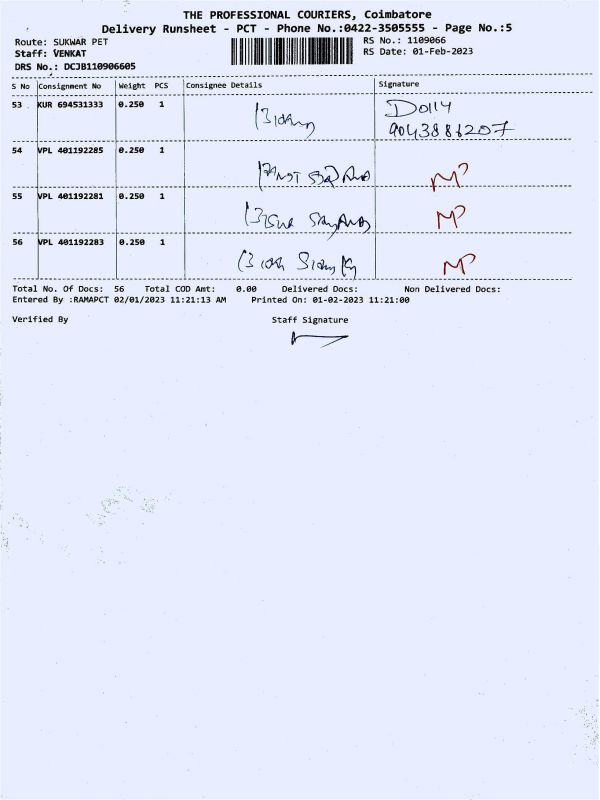 THE PROFESSIONAL COURIERS, Coimbatore
Delivery Runsheet - PCT - Phone No.:0422-3505555 - Page No.:5
Route: SUKWAR PET
RS No.: 1109066
Staff: VENKAT
RS Date: 01-Feb-2023
DRS No.: DCJB110906605
S No Consignment No Weight PCS Consignee Details Signature
53 KUR 694531333 0.250 1 Dolly
9043886207
54 VPL 401192285 0.250 1 MP
55 VPL 401192281 0.250 1 MP
56 VPL 401192283 0.250 1 MP
Total No. Of Docs: 56 Total COD Amt: 0.00 Delivered Docs: Non Delivered Docs:
Entered By :RAMAPCT 02/01/2023 11:21:13 AM Printed On: 01-02-2023 11:21:00
Verified By Staff Signature